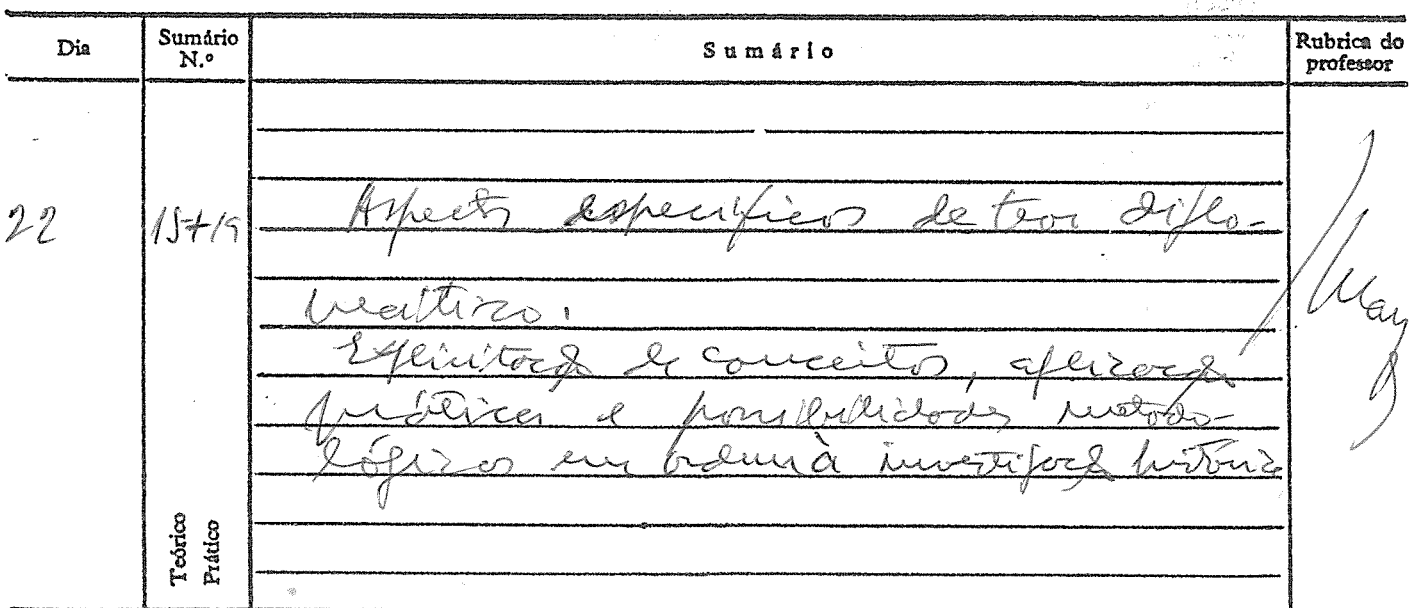 Dia Sumário N.º Sumário Rubrica do professor
22 Aspectos específicos de teor diplo-
mático.
Explicitação de conceitos, aplicação
prática e possibilidades metodo-
lógicas em ordem à investigação histórica
Teórico
Prático